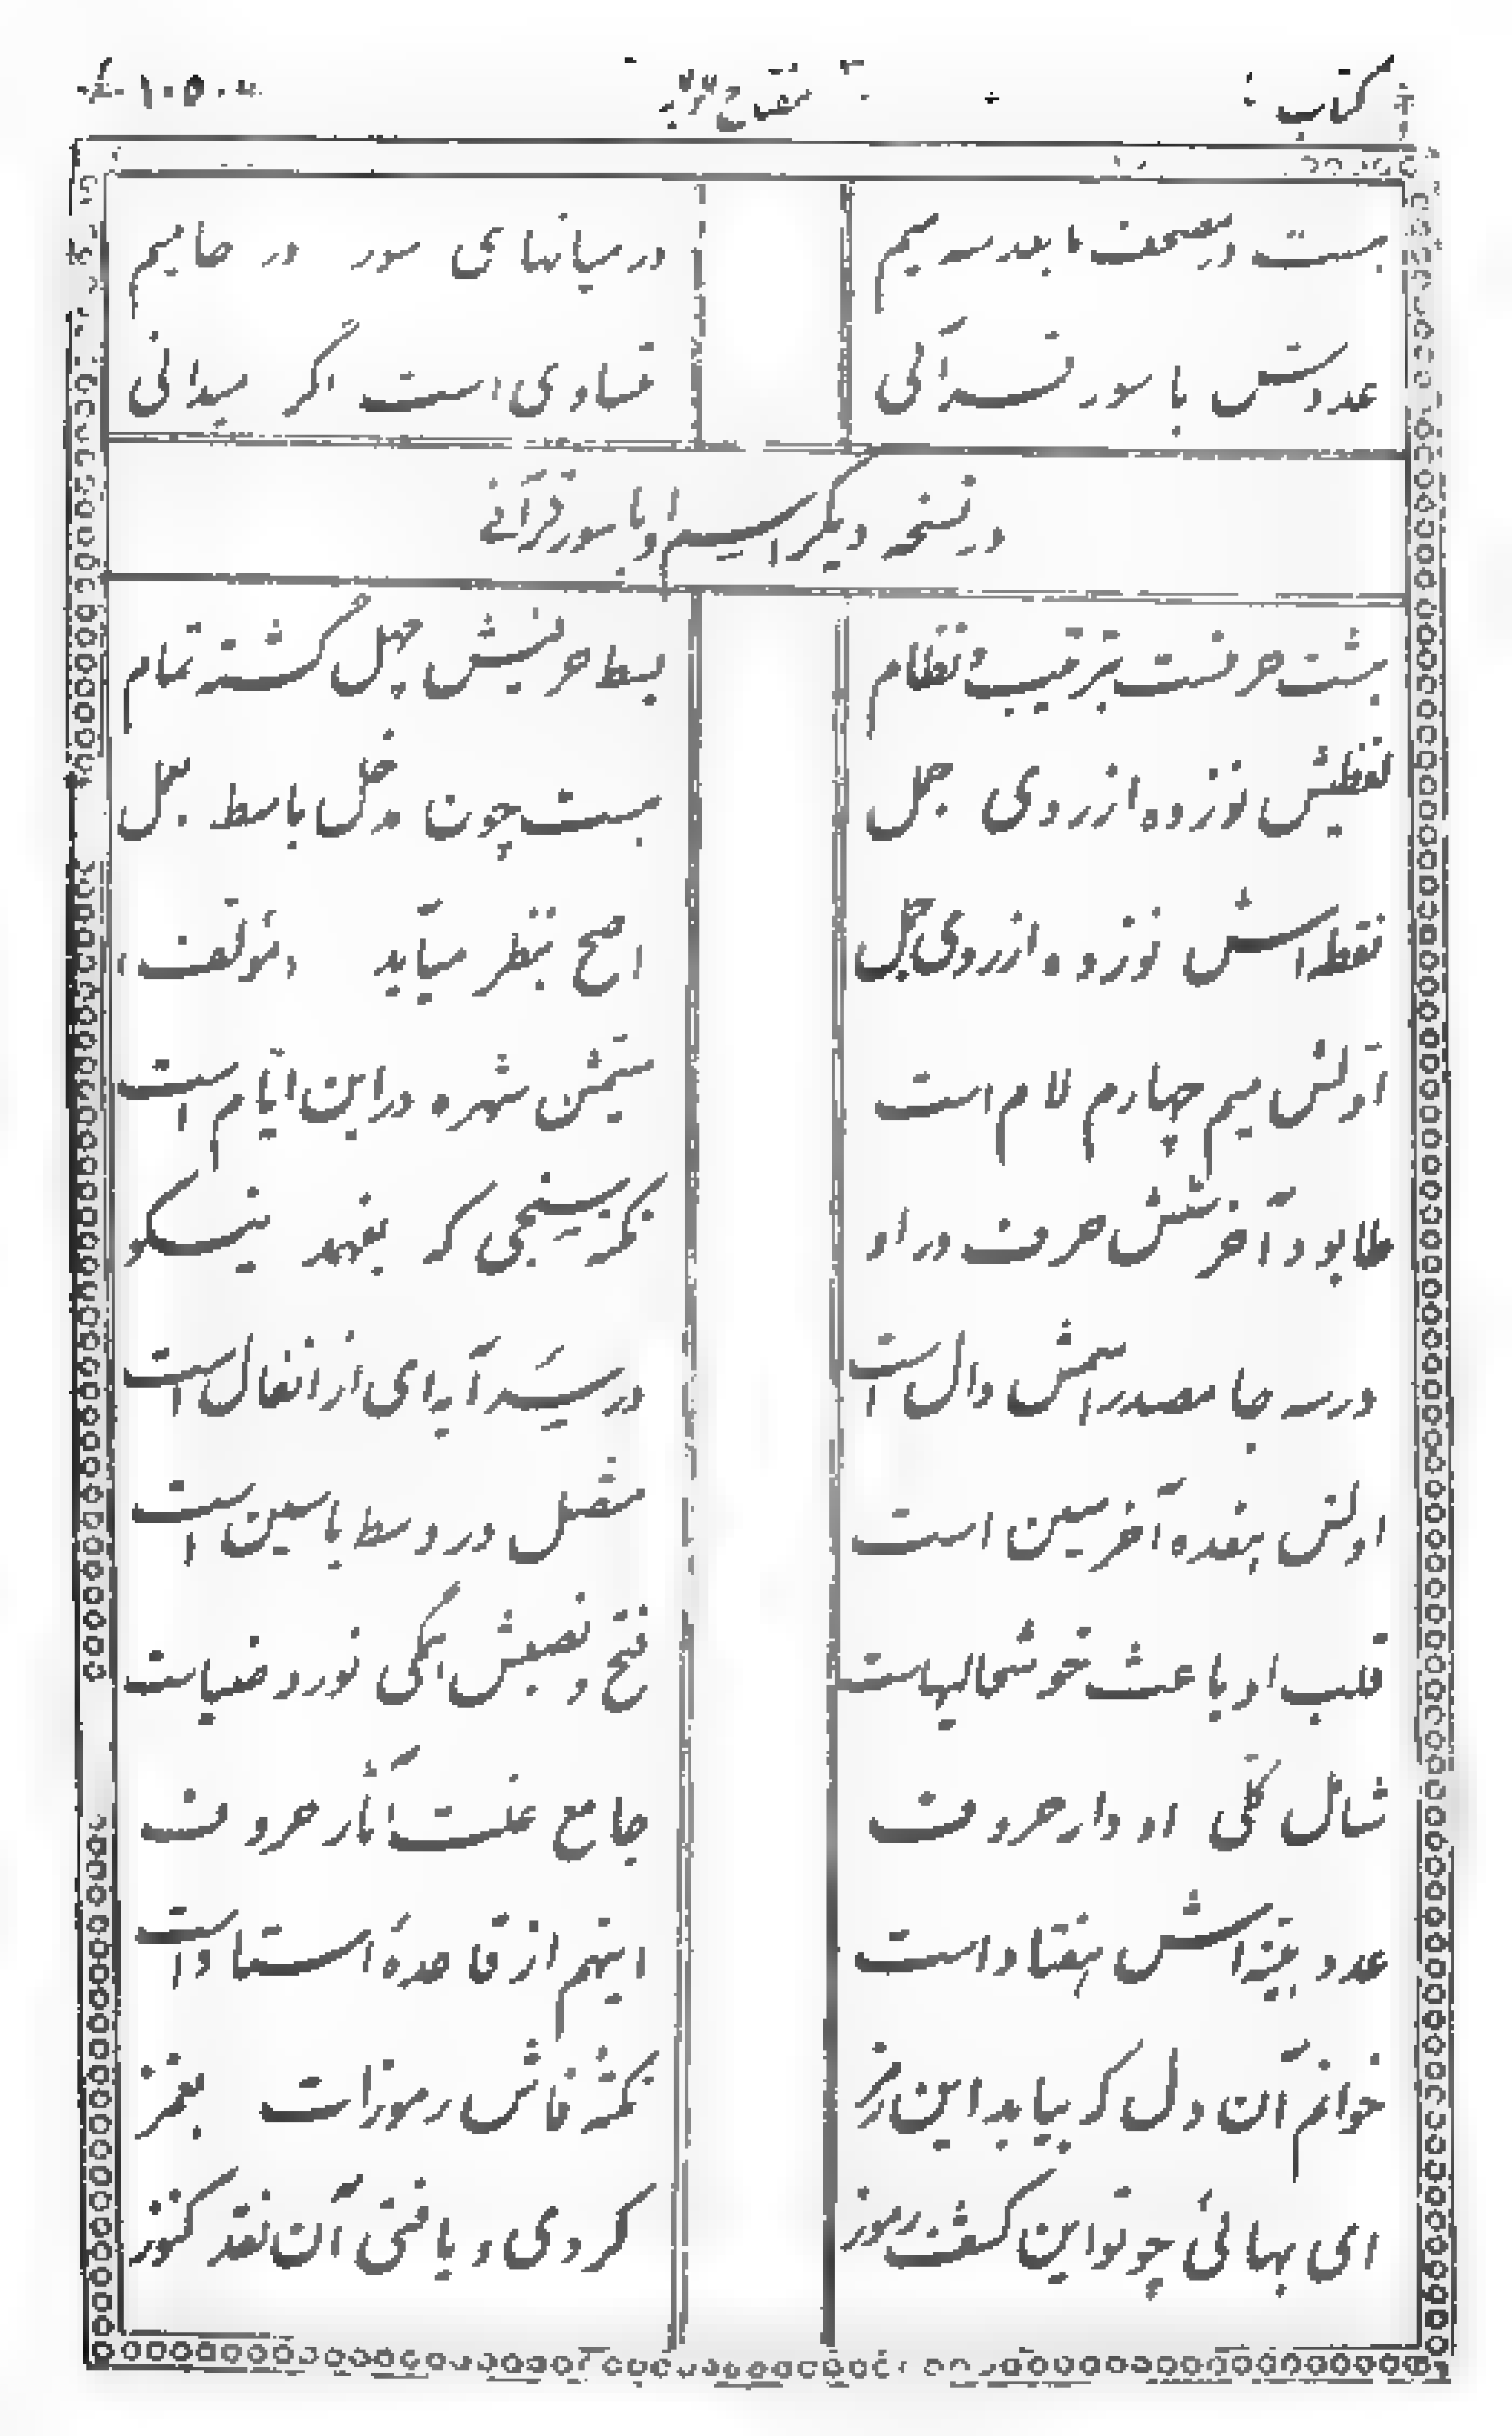 کتاب : مفتاح ۱۰۵۰
هست در مصحف ما بعد سه میم در میانهای سور در حامیم
عددش با سور قرآنی تساوی است اگر میدانی
در نسخه دیگر اسم او با سور قرآنی
هشت حرفست بترتیب و نظام بسط حرفیش چهل گشته تمام
لفظیش نوزده از روی جمل هست چون مدخل باسط بعمل
نقطه‌اش نوزده از روی جمل اصح بنظر میآید «مؤلف»
اولش میم چهارم لام است ششمش شهره در این ایام است
طا بود آخر شش حرف در او نکته سنجی که بفهمد نیکو
در سه جا مصدر اسمش دال است در سه آیه‌ای از انفال است
اولش هفده آخر سین است متصل در وسط یاسین است
قلب او باعث خوشحالیهاست فتح و نصبش همگی نور و ضیاست
شامل کلی ادوار حروف جامع علت آثار حروف
عدد بقیه‌اش هفتاد است اینهم از قاعدهٔ استاد است
خوانم آن دل که بیابد این رمز نکته فاش رموزات بغمز
ای بهائی چو تو این کشف رموز کردی و یافتی آن نقد کنوز